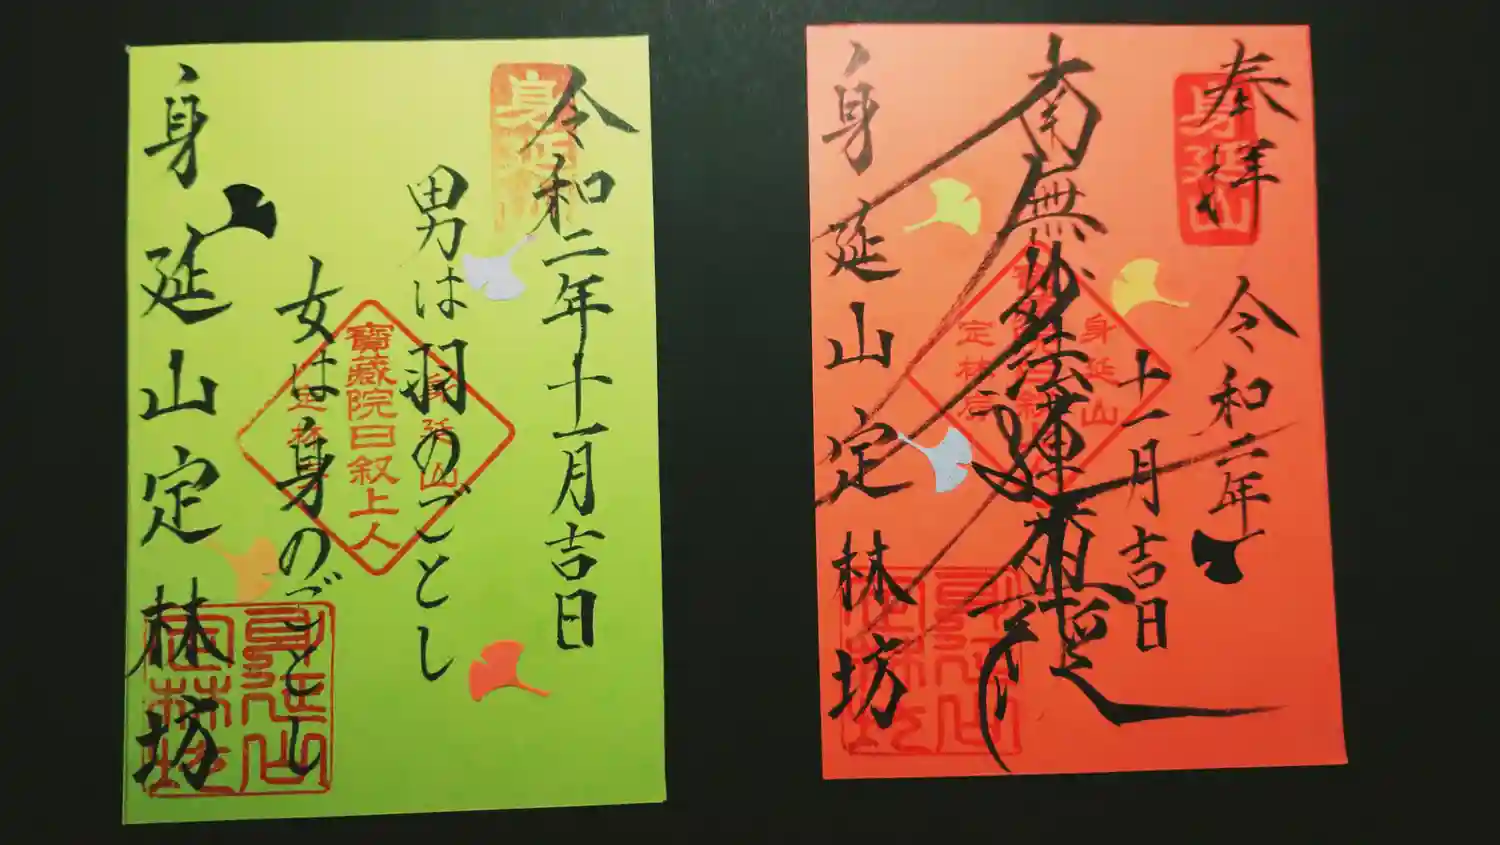 令和二年十一月吉日
男は羽のごとし
女は身のごとし
身延山定林坊
身延山
寳蔵院日叙上人
定林坊
身延山
定林坊
奉拝
令和二年
十一月吉日
南無妙法蓮華経
身延山定林坊
身延山
身延山
定林坊
身延山
定林坊